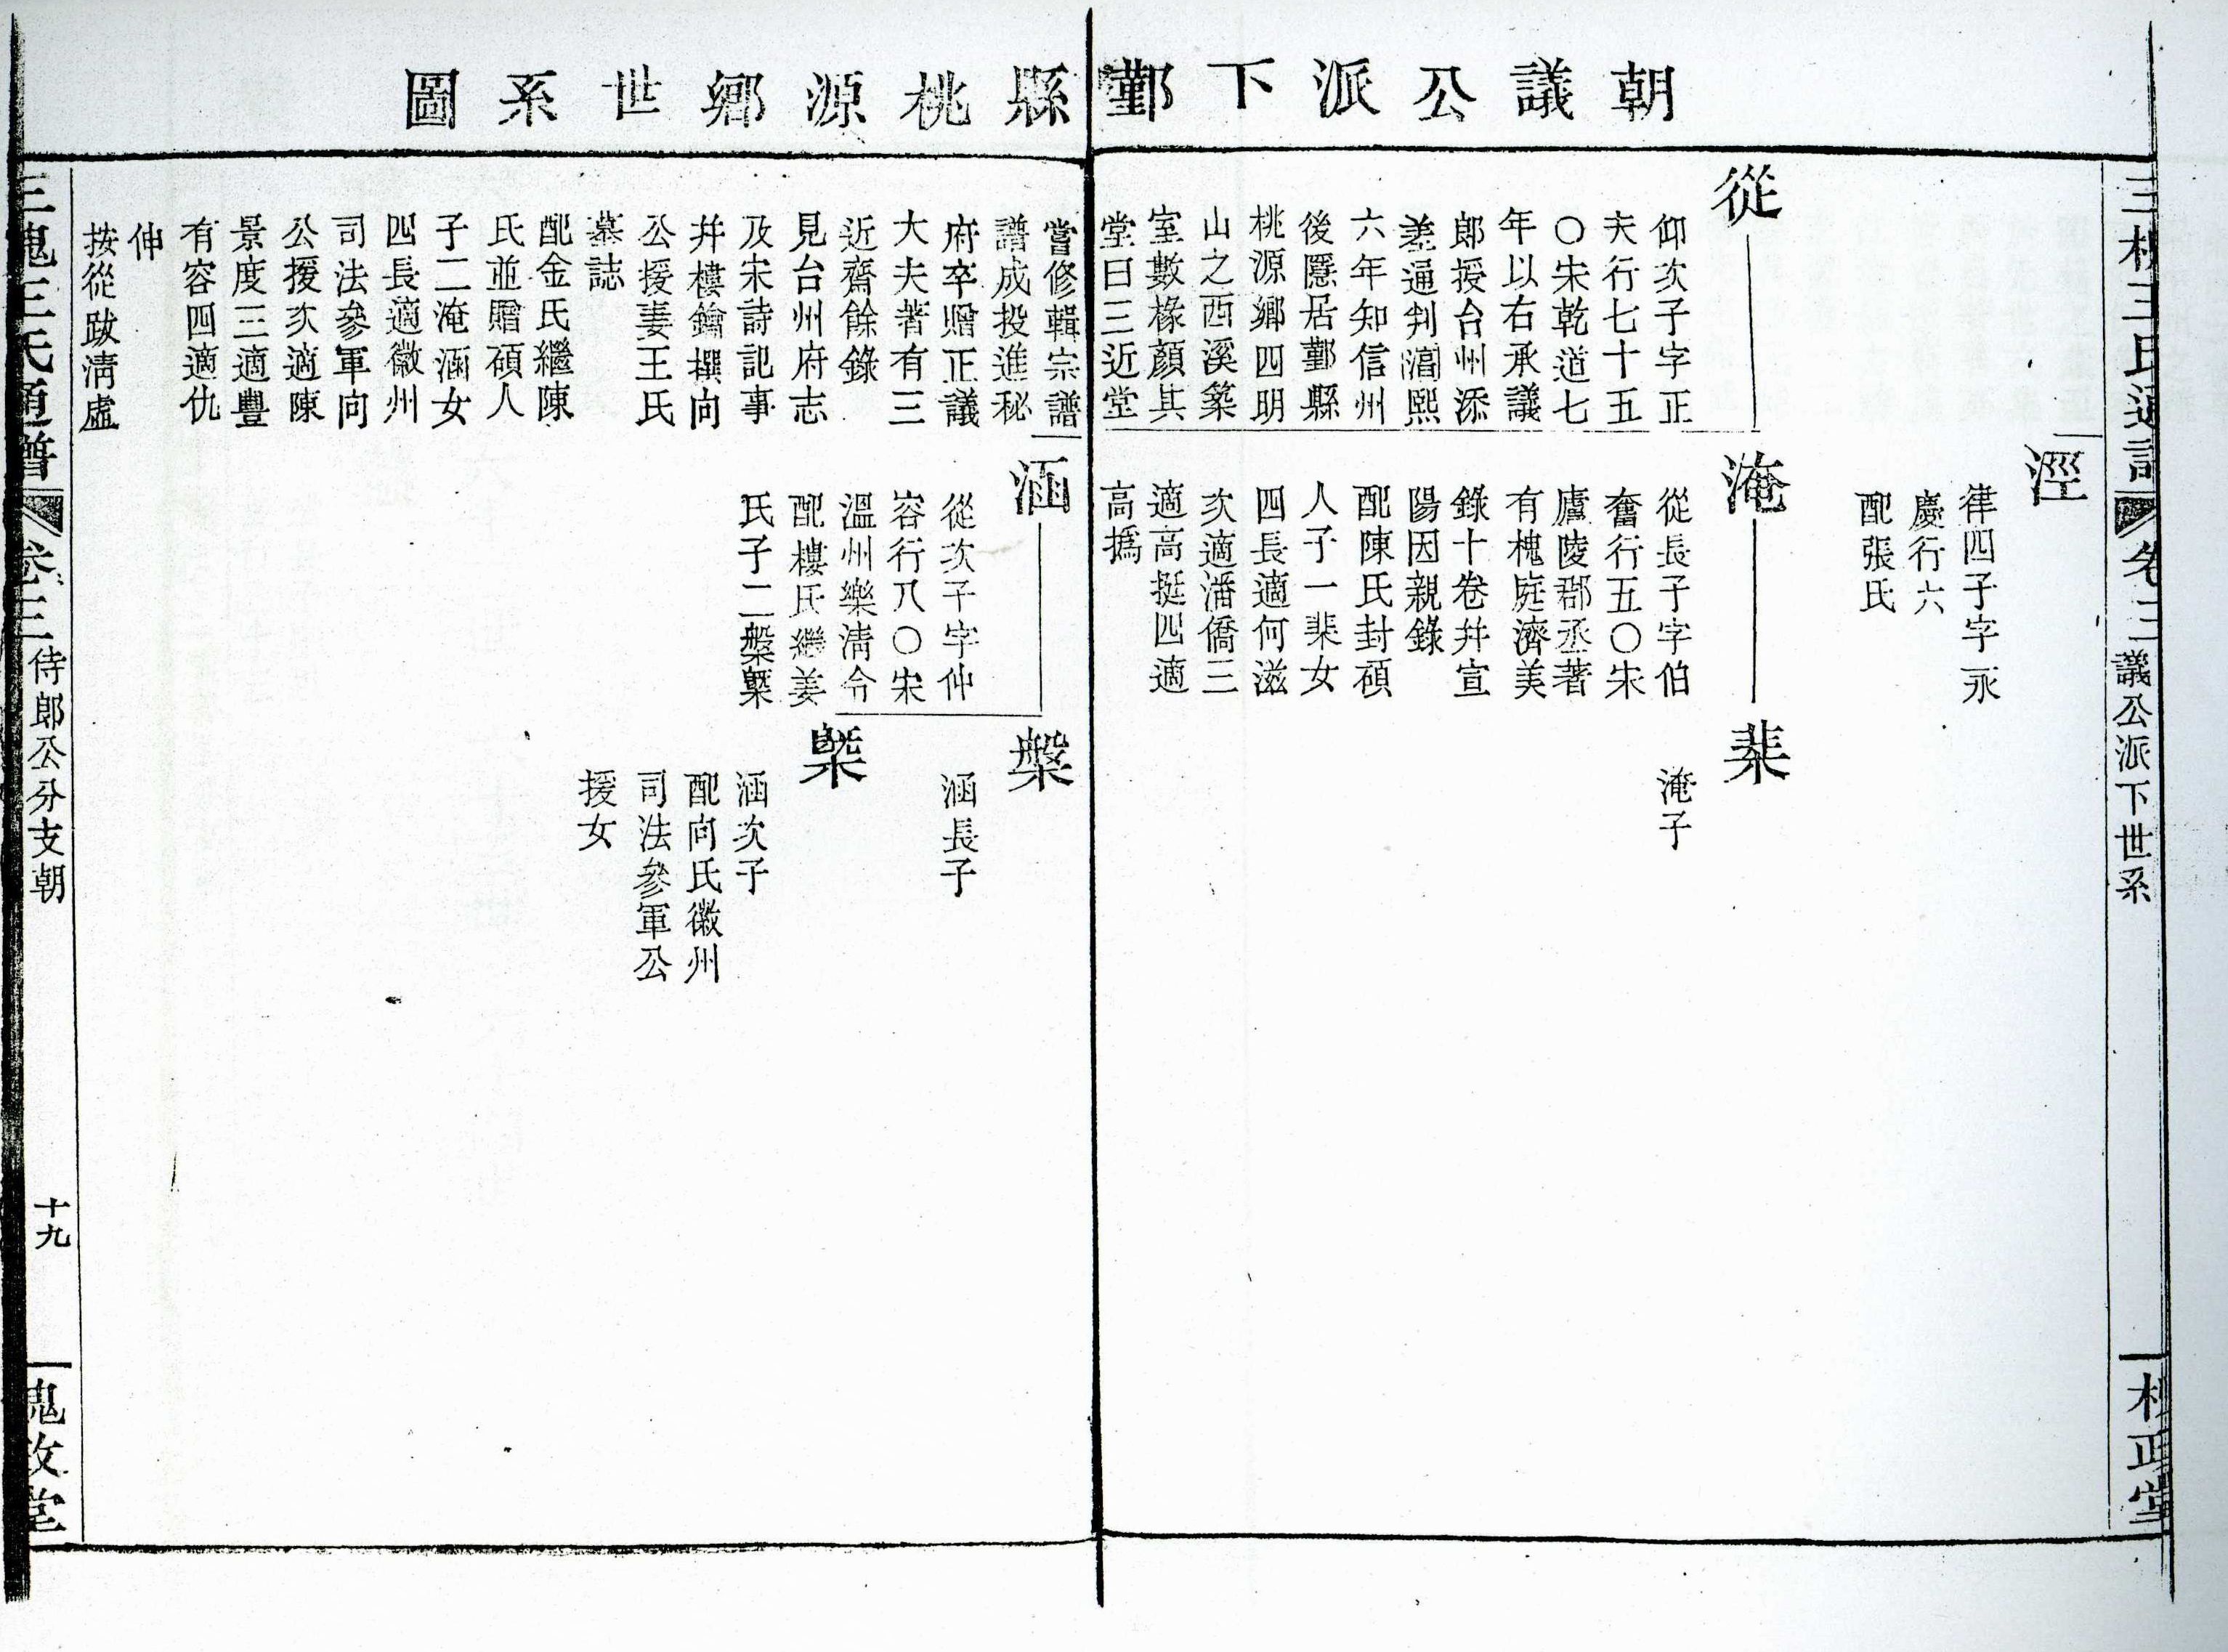 朝議公派下鄞縣桃源鄉世系圖
涇
律四子字永
慶行六
配張氏
從
仰次子字正
夫行七十五
〇宋乾道七
年以右承議
郎授台州添
差通判淳熙
六年知信州
後隱居鄞縣
桃源鄉四明
山之西溪築
室數椽顏其
堂曰三近堂
嘗修輯宗譜
譜成投進秘
府卒贈正議
大夫著有三
近齋餘錄
見台州府志
及宋詩記事
幷樓鑰撰向
公援妻王氏
墓誌
配金氏繼陳
氏並贈碩人
子二淹涵女
四長適徽州
司法參軍向
公援次適陳
景度三適豐
有容四適仇
仲
按從跋清虛
淹
從長子字伯
奮行五〇宋
廬陵郡丞著
有槐庭濟美
錄十卷幷宣
陽因親錄
配陳氏封碩
人子一棐女
四長適何滋
次適潘僑三
適高挺四適
高撝
棐
淹子
涵
從次子字仲
容行八〇宋
溫州樂清令
配樓氏繼姜
氏子二槃槩
槃
涵長子
槩
涵次子
配向氏徽州
司法參軍公
援女
三槐王氏通譜
卷三
侍郎公分支朝
議公派下世系
十九
槐政堂